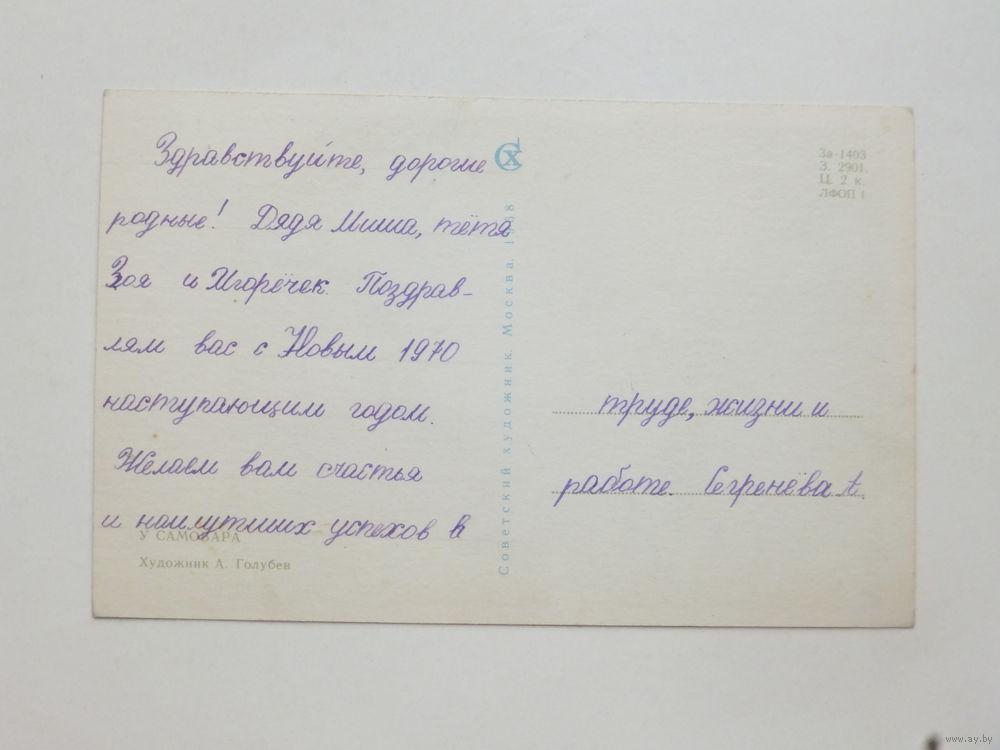 Здравствуйте, дорогие
родные! Дядя Миша, тётя
Зоя и Игорёчек. Поздрав-
лям вас с Новым 1970
наступающим годом.
Желаем вам счастья
и наилутших успехов в
У САМОВАРА
Художник А. Голубев
Советский художник. Москва. 1968
СХ
За-1403
З. 2901.
Ц. 2 к.
ЛФОП 1
труде, жизни и
работе. Сегренёва А.
www.ay.by